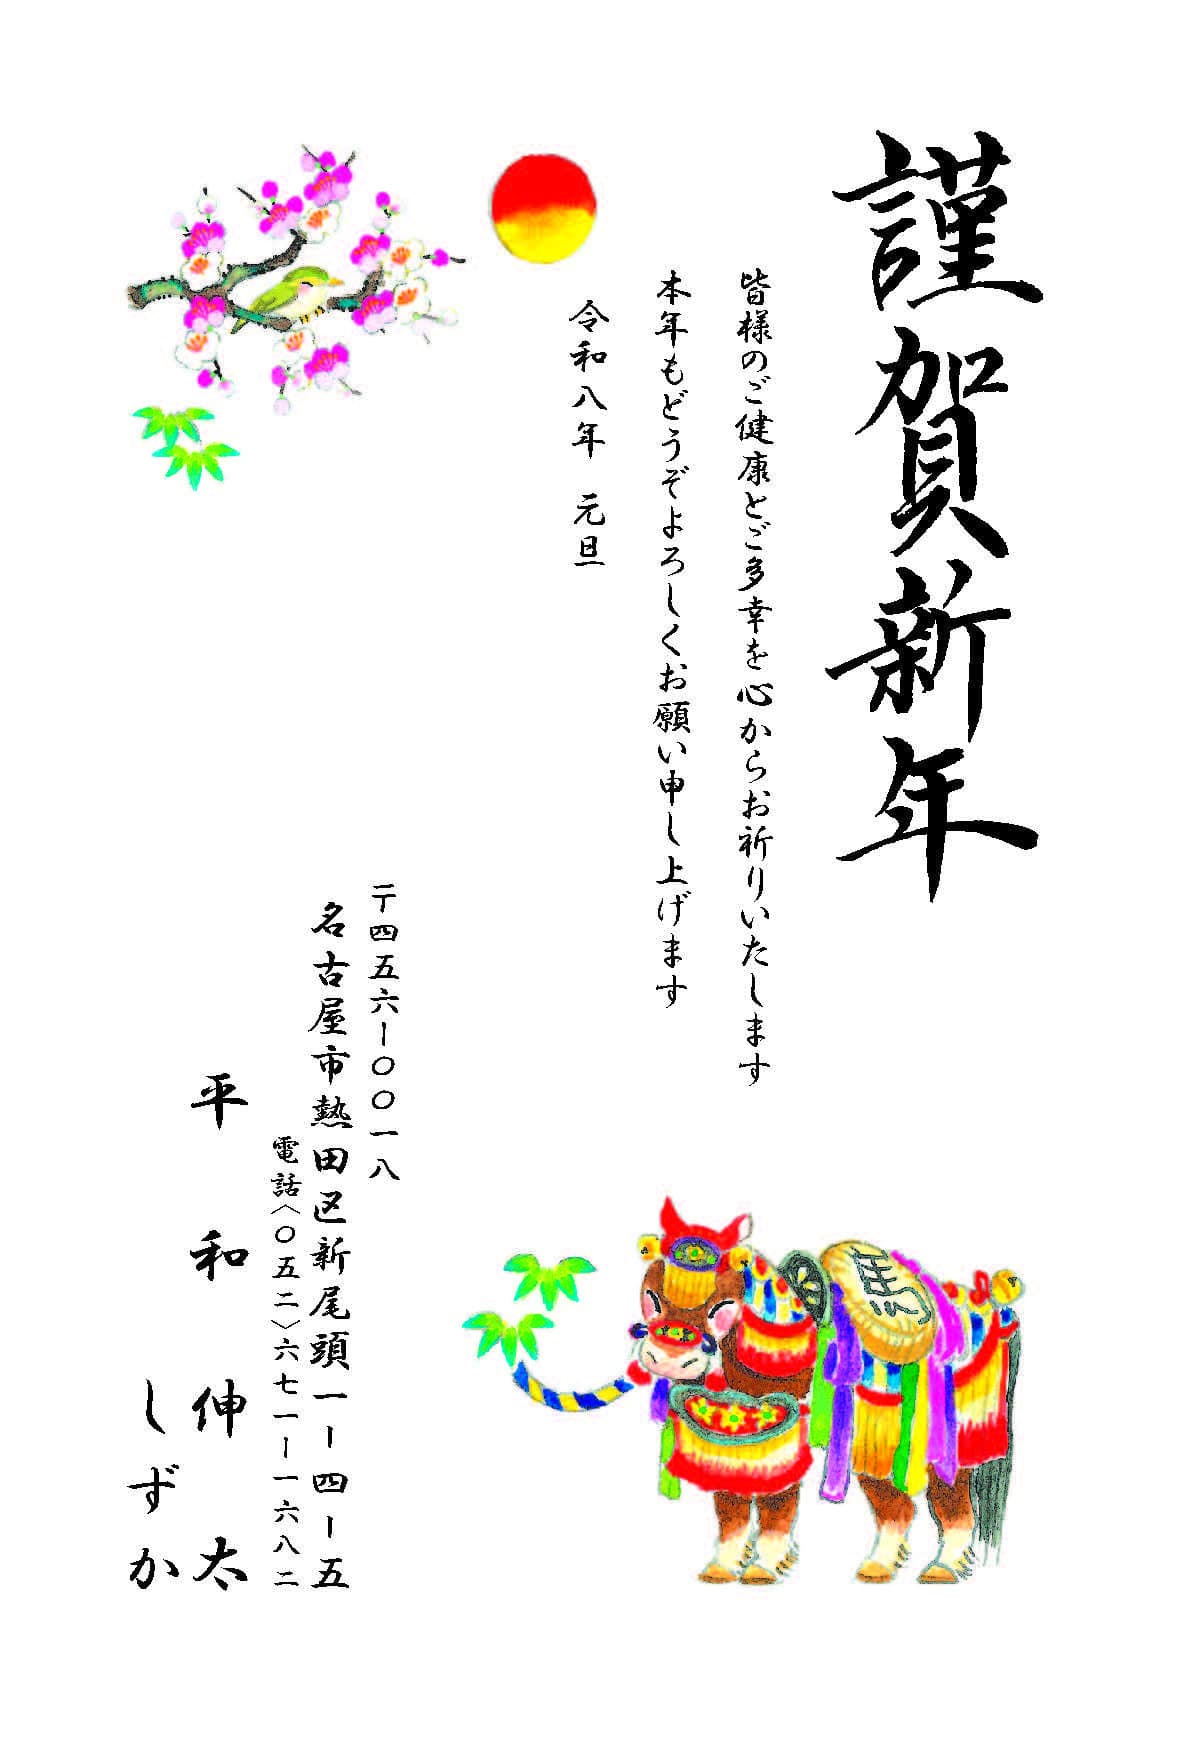 謹賀新年
皆様のご健康とご多幸を心からお祈りいたします
本年もどうぞよろしくお願い申し上げます
令和八年 元旦
〒四五六ー〇〇一八
名古屋市熱田区新尾頭一ー四ー五
電話〈〇五二〉六七一ー一六八二
平和伸太
しずか
馬